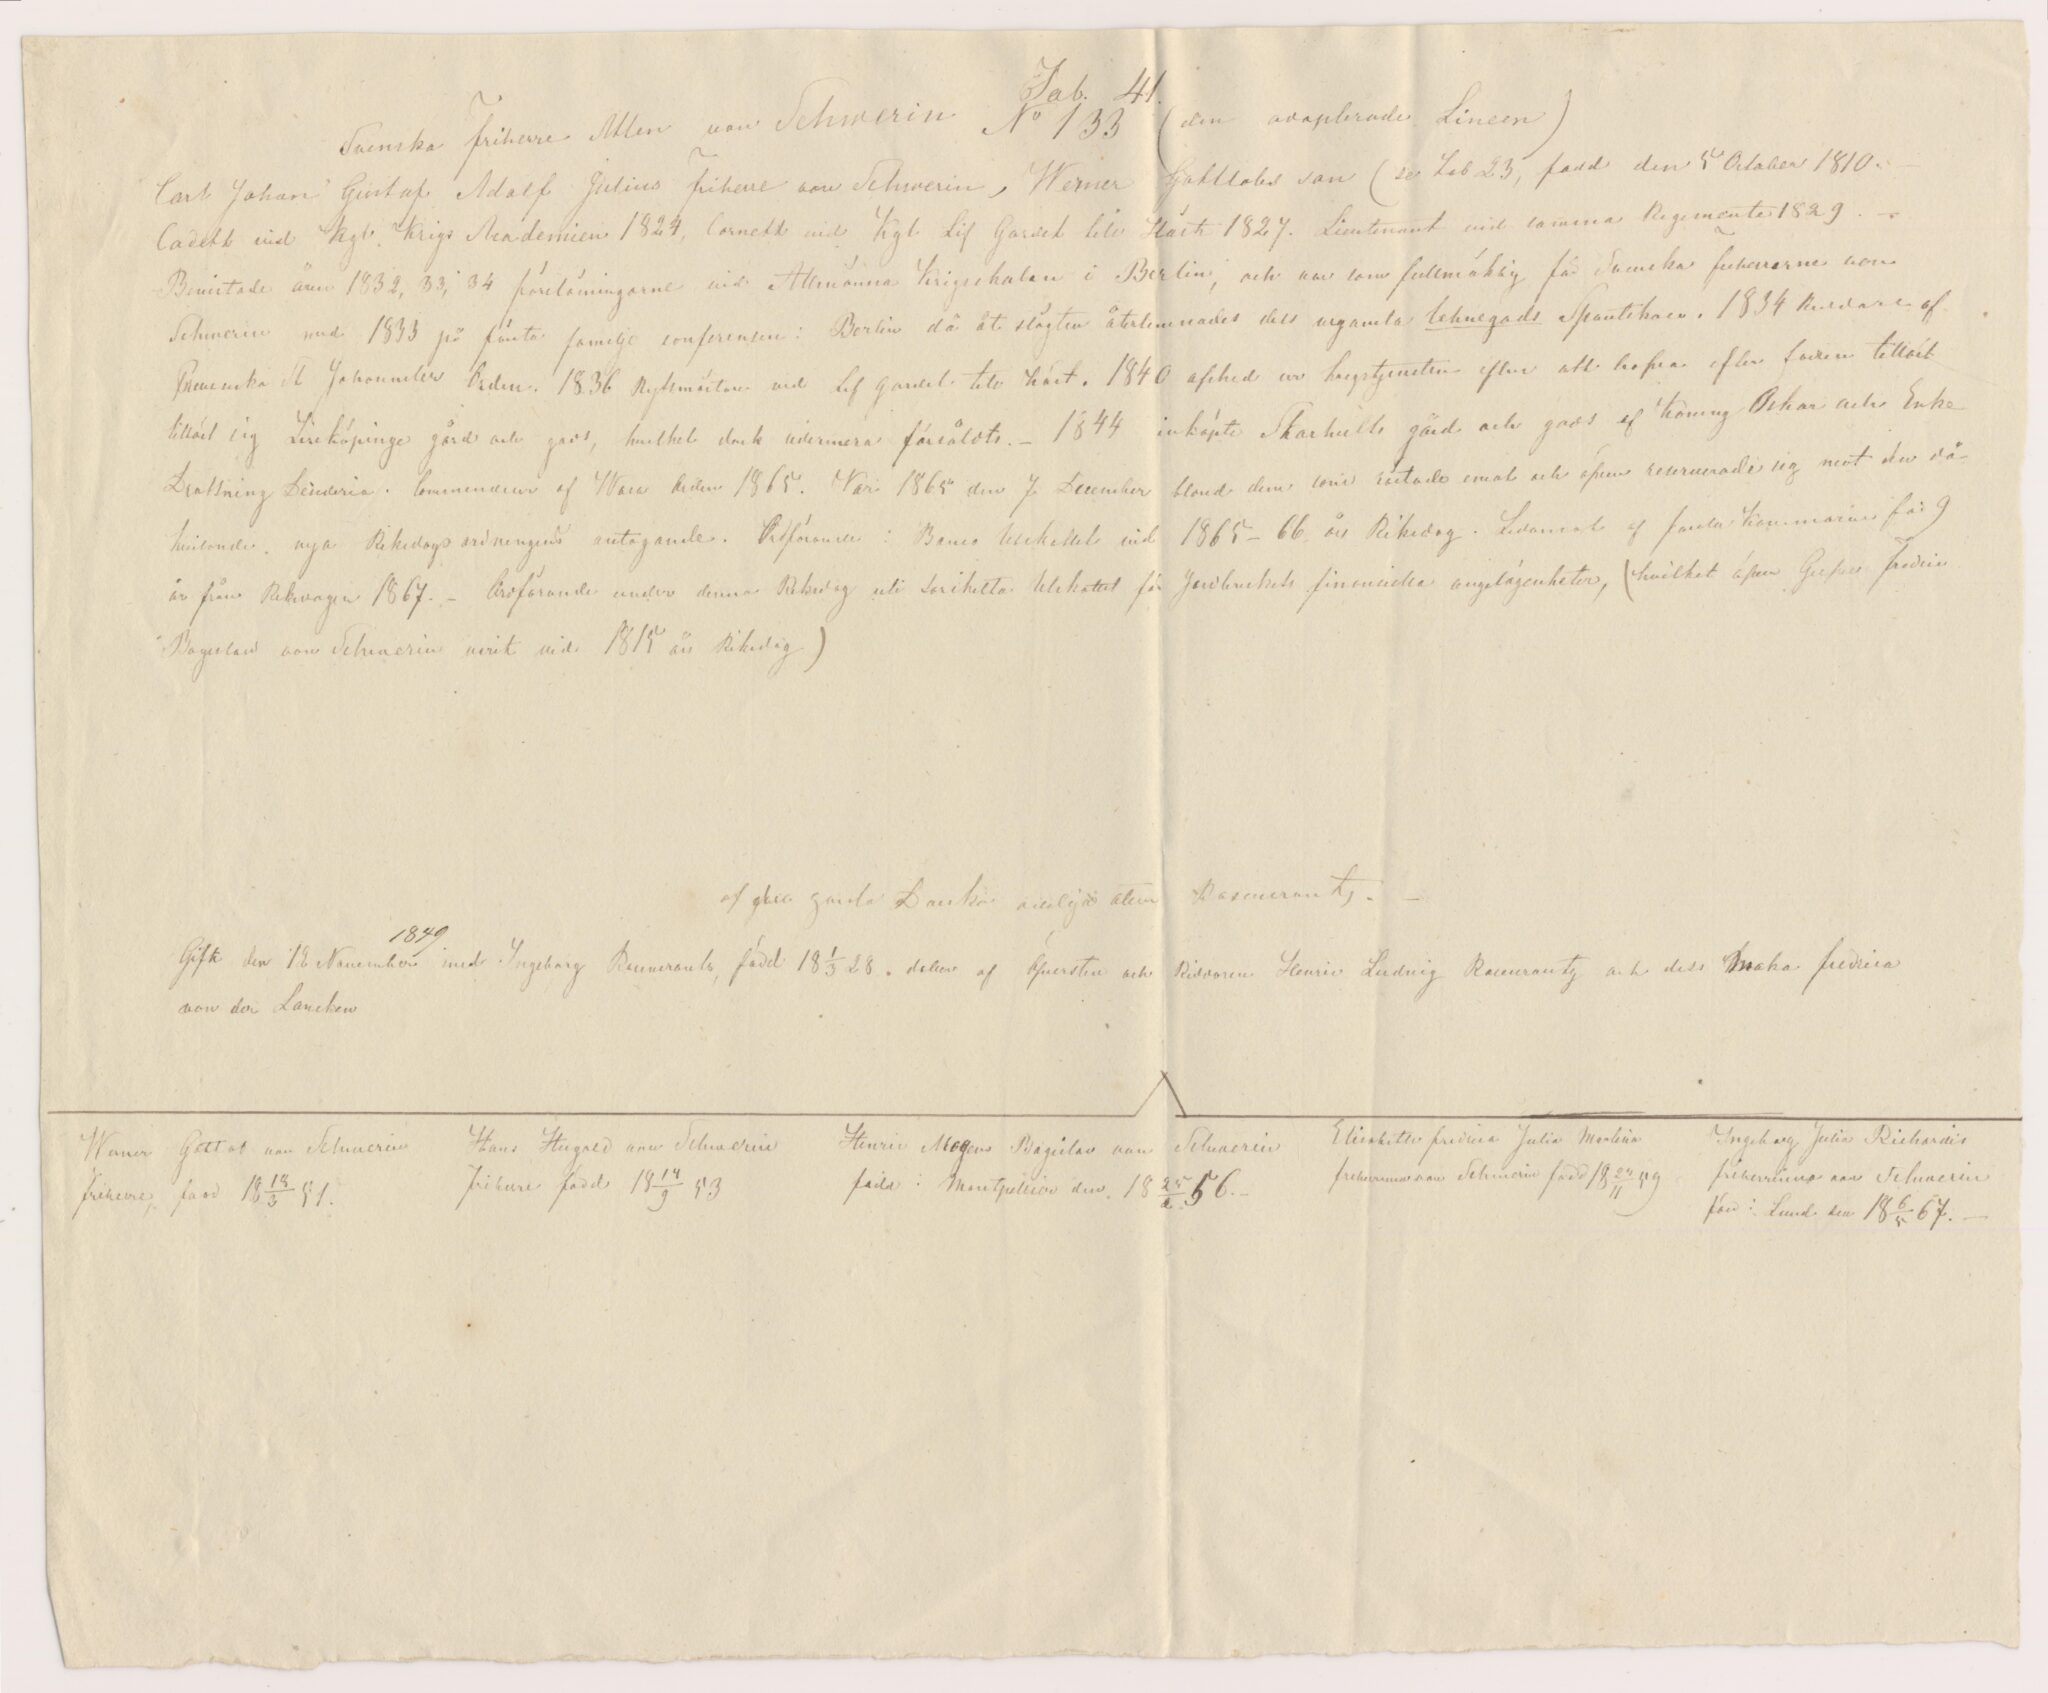 Tab. 41.
Svenska Friherre Ätten von Schwerin No 133 (den adopterade Lineen)
Carl Johan Gustaf Adolf Julius Friherre von Schwerin, Werner Gottlobs son (se Tab 23, född den 5 October 1810. —
Cadett vid Kgl. Krigs Academien 1824, Cornett vid Kgl Lif Gardet till Häst 1827. Lieutenant vid samma Regemente 1829. —
Bevistade åren 1832, 33, 34 föreläsningarne vid Allmänna Krigsskolan i Berlin, och var som fullmäktig för Svenska friherrarne von
Schwerin med 1833 på första familje conferensen i Berlin då åt slägten återlemnades dess urgamla lehnegods Spantekow. 1834 Riddare af
Preussiska St Johanniter Orden. 1836 Ryttmästare vid Lif Gardet till häst. 1840 afsked ur krigstjensten efter att hafva efter fadren tillöst
tillöst sig Sireköpinge gård och gods, hvilket dock sidermera försåldts. — 1844 inköpte Skarhults gård och gods af Konung Oskar och Enke
Drottning Desideria. Commendeur af Wasa Orden 1865. Var 1865 den 7 December bland dem som röstade emot och äfven reserverade sig mot den då-
hvilande nya Riksdags ordningens antagande. Ordförande i Banco Utskottet vid 1865–66 års Riksdag. Ledamot af första Kammaren för 9
år från Riksdagen 1867. — Ordförande under denna Riksdag uti särskilta Utskottet för Jordbrukets finansiella angelägenheter, (hvilket äfven Grefve Fredric
Bogislaus von Schwerin varit vid 1815 års Riksdag)
af den gamla Danska adeliga ätten Rosencrantz. —
1849
Gift den 12 November med Ingeborg Rosencrantz, född 18 1/3 28. dotter af Öfversten och Riddaren Henric Ludvig Rosencrantz och dess Maka Fredrica
von der Lancken
Werner Gottlob von Schwerin
friherre, född 18 18/3 51.
Hans Hugold von Schwerin
friherre född 18 14/9 53
Henric Mogens Bogislav von Schwerin
född i Montpellier den 18 25/2 56. —
Elisabeth fredrica Julia
friherrinna von Schwerin född 18 24/11 59
Ingeborg Julia Richardis
friherrinna von Schwerin
född i Lund den 18 6/5 67. —